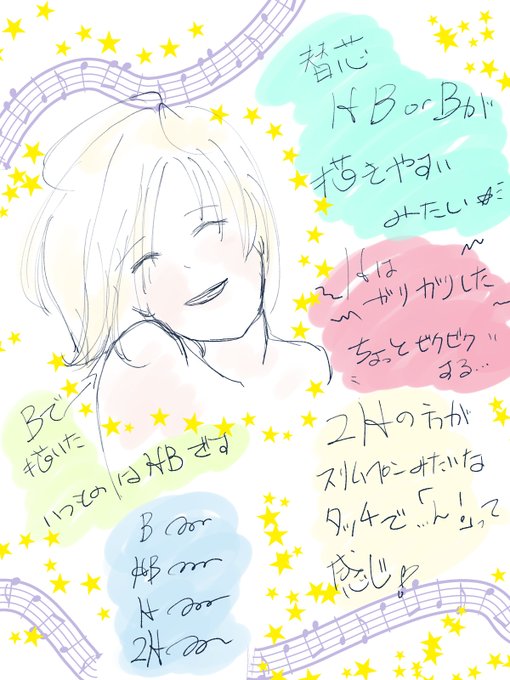 替芯
HB or Bが
描きやすい
みたい
Hは
ガリガリした
ちょっとゼクゼク
する…
Bで
描いた
いつものはHBです
2Hの方が
スリムペンみたいな
タッチで「…ん!」って
感じ♪
B
HB
H
2H